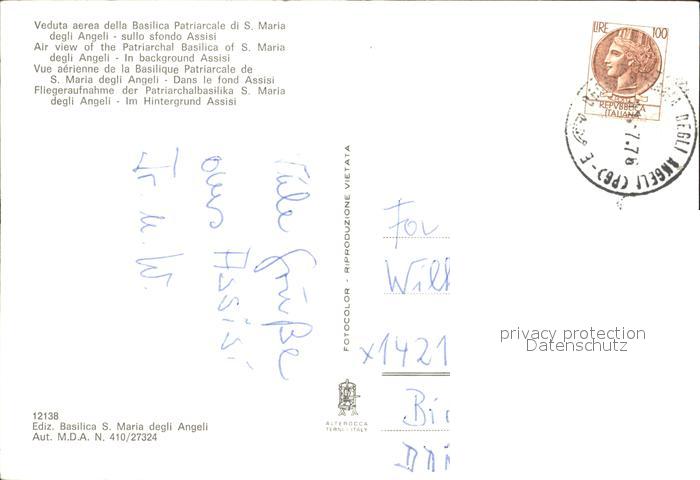 Veduta aerea della Basilica Patriarcale di S. Maria
degli Angeli - sullo sfondo Assisi
Air view of the Patriarchal Basilica of S. Maria
degli Angeli - In background Assisi
Vue aérienne de la Basilique Patriarcale de
S. Maria degli Angeli - Dans le fond Assisi
Fliegeraufnahme der Patriarchalbasilika S. Maria
degli Angeli - Im Hintergrund Assisi
LIRE 100
REPVBBLICA
ITALIANA
DEGLI ANGELI (PG) - E
7.76
Viele Grüße
aus Assisi
FOTOCOLOR - RIPRODUZIONE VIETATA
x1421
privacy protection
Datenschutz
ALTEROCCA
TERNI - ITALY
12138
Ediz. Basilica S. Maria degli Angeli
Aut. M.D.A. N. 410/27324